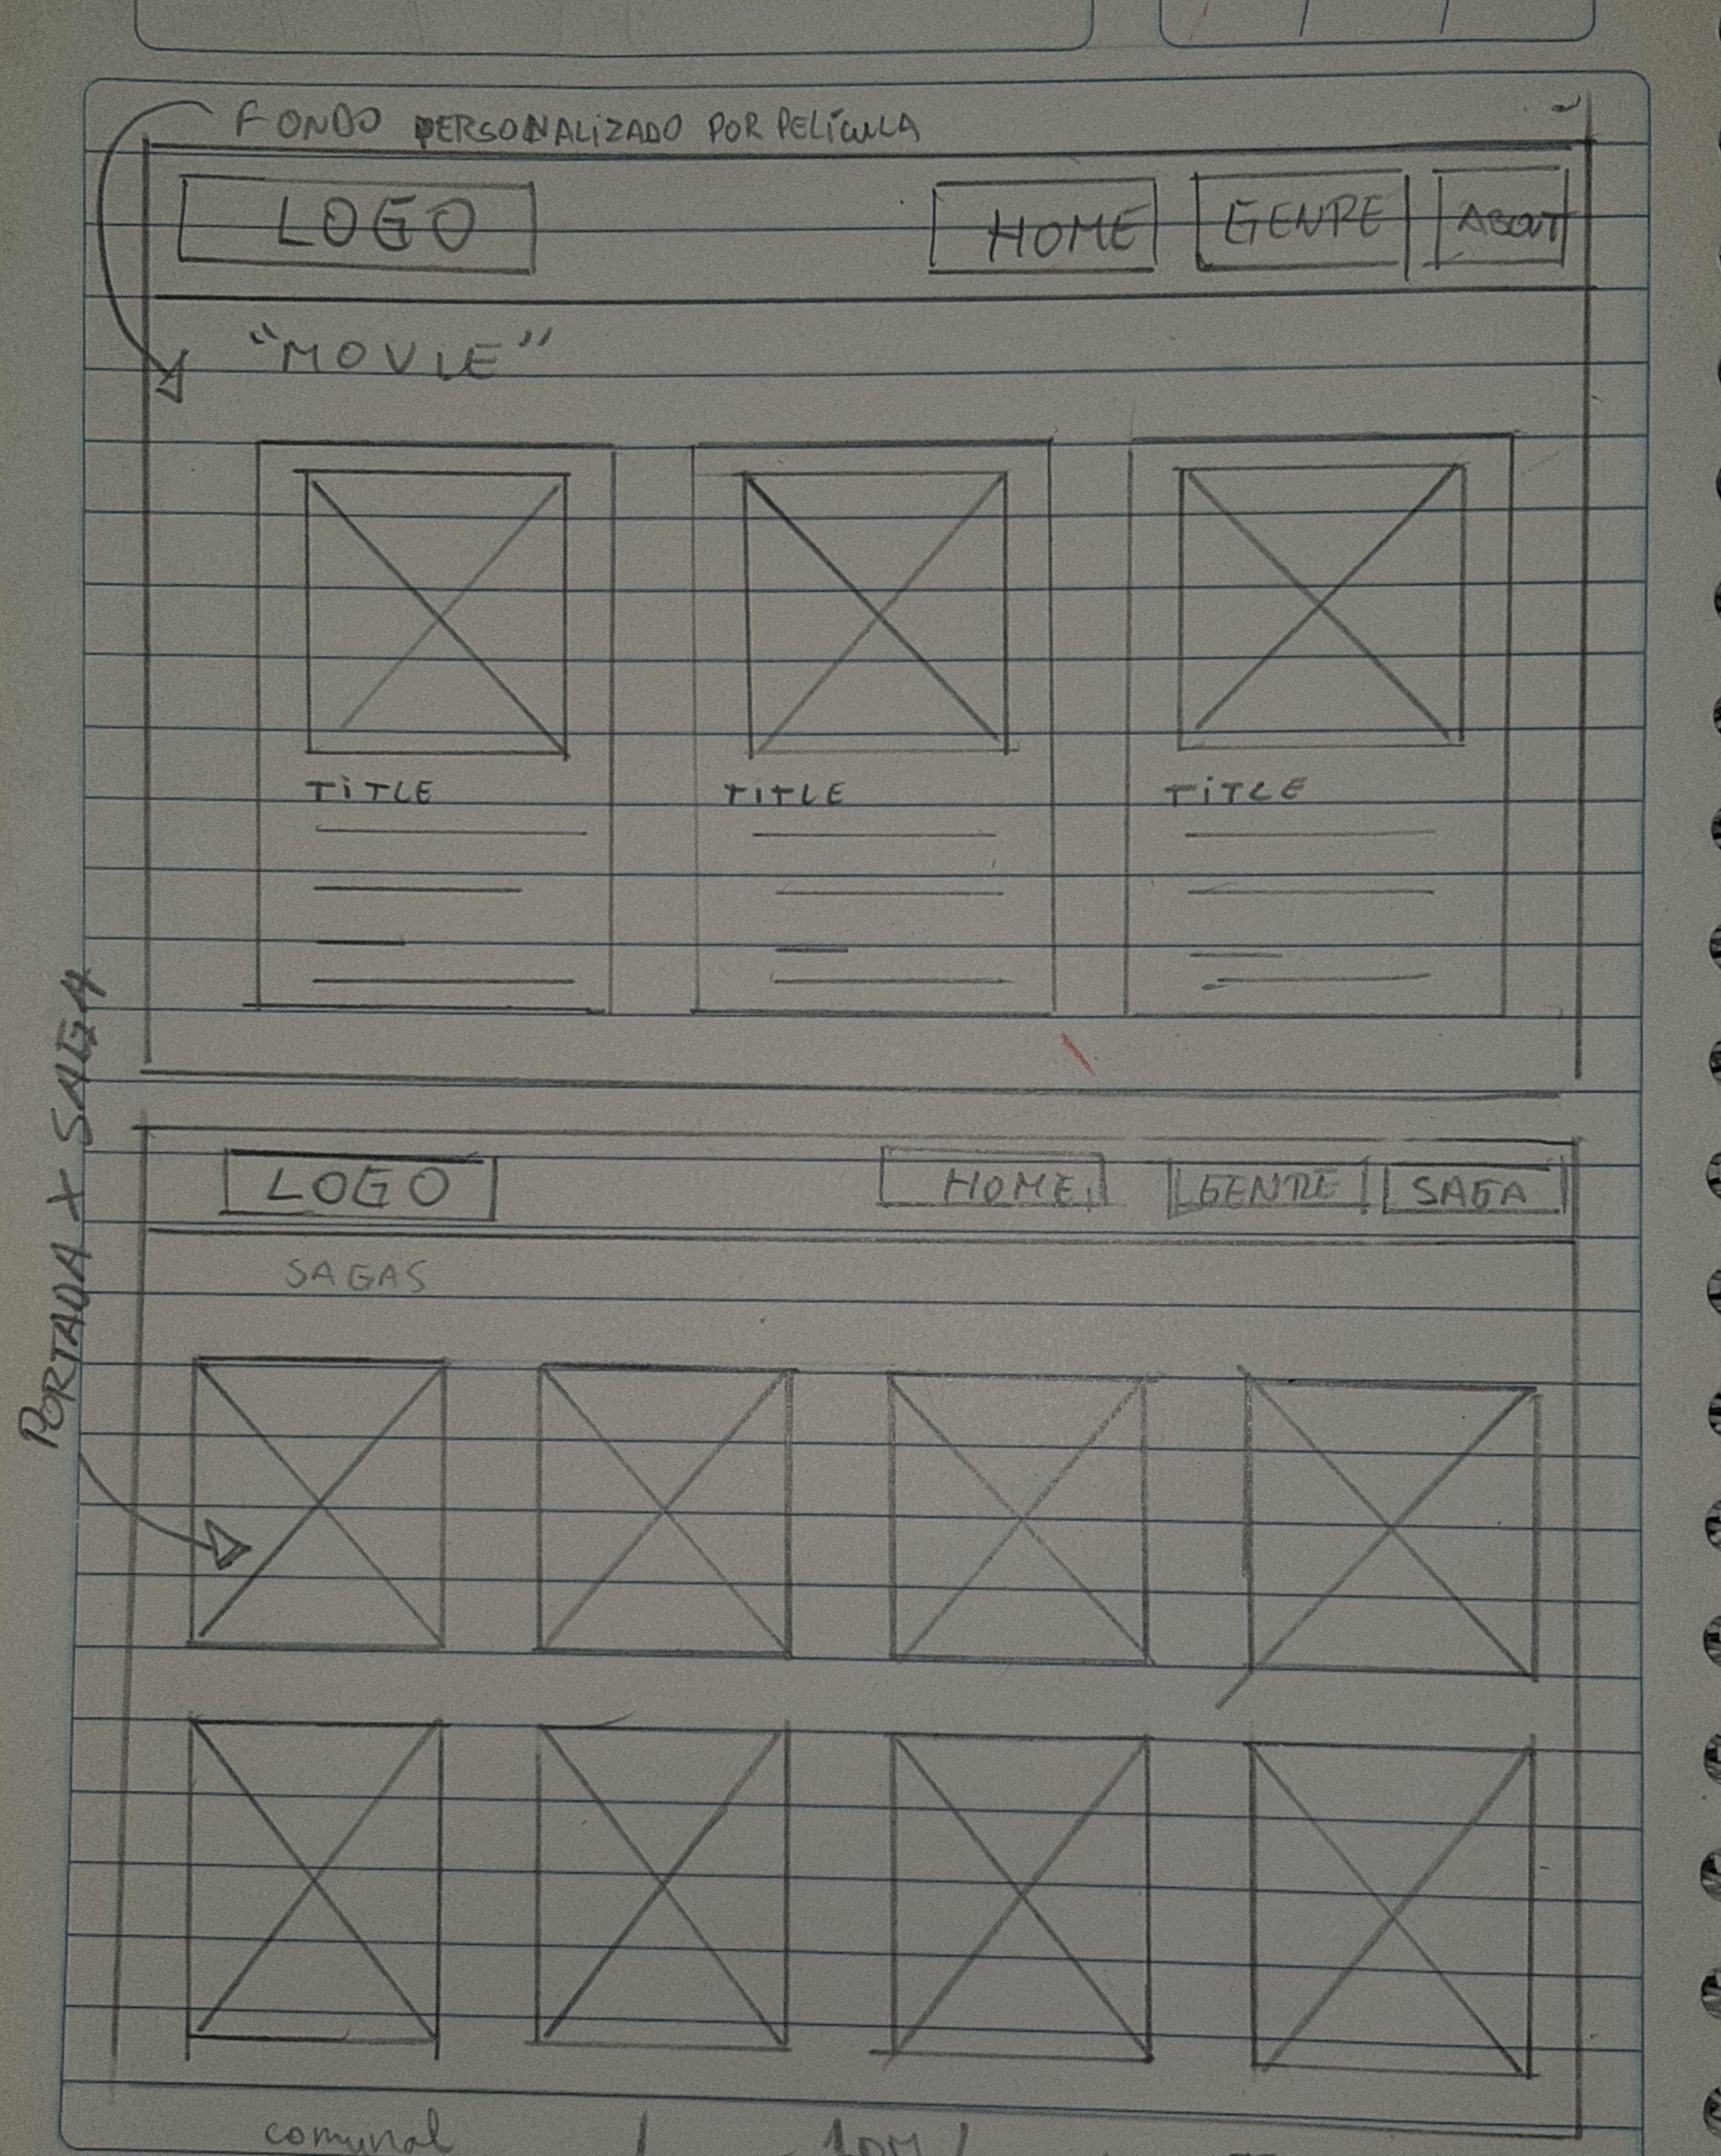 FONDO PERSONALIZADO POR PELÍCULA
LOGO HOME GENRE ABOUT
"MOVIE"
TITLE TITLE TITLE
PORTADA X SAGA
LOGO HOME GENRE SAGA
SAGAS
comunal